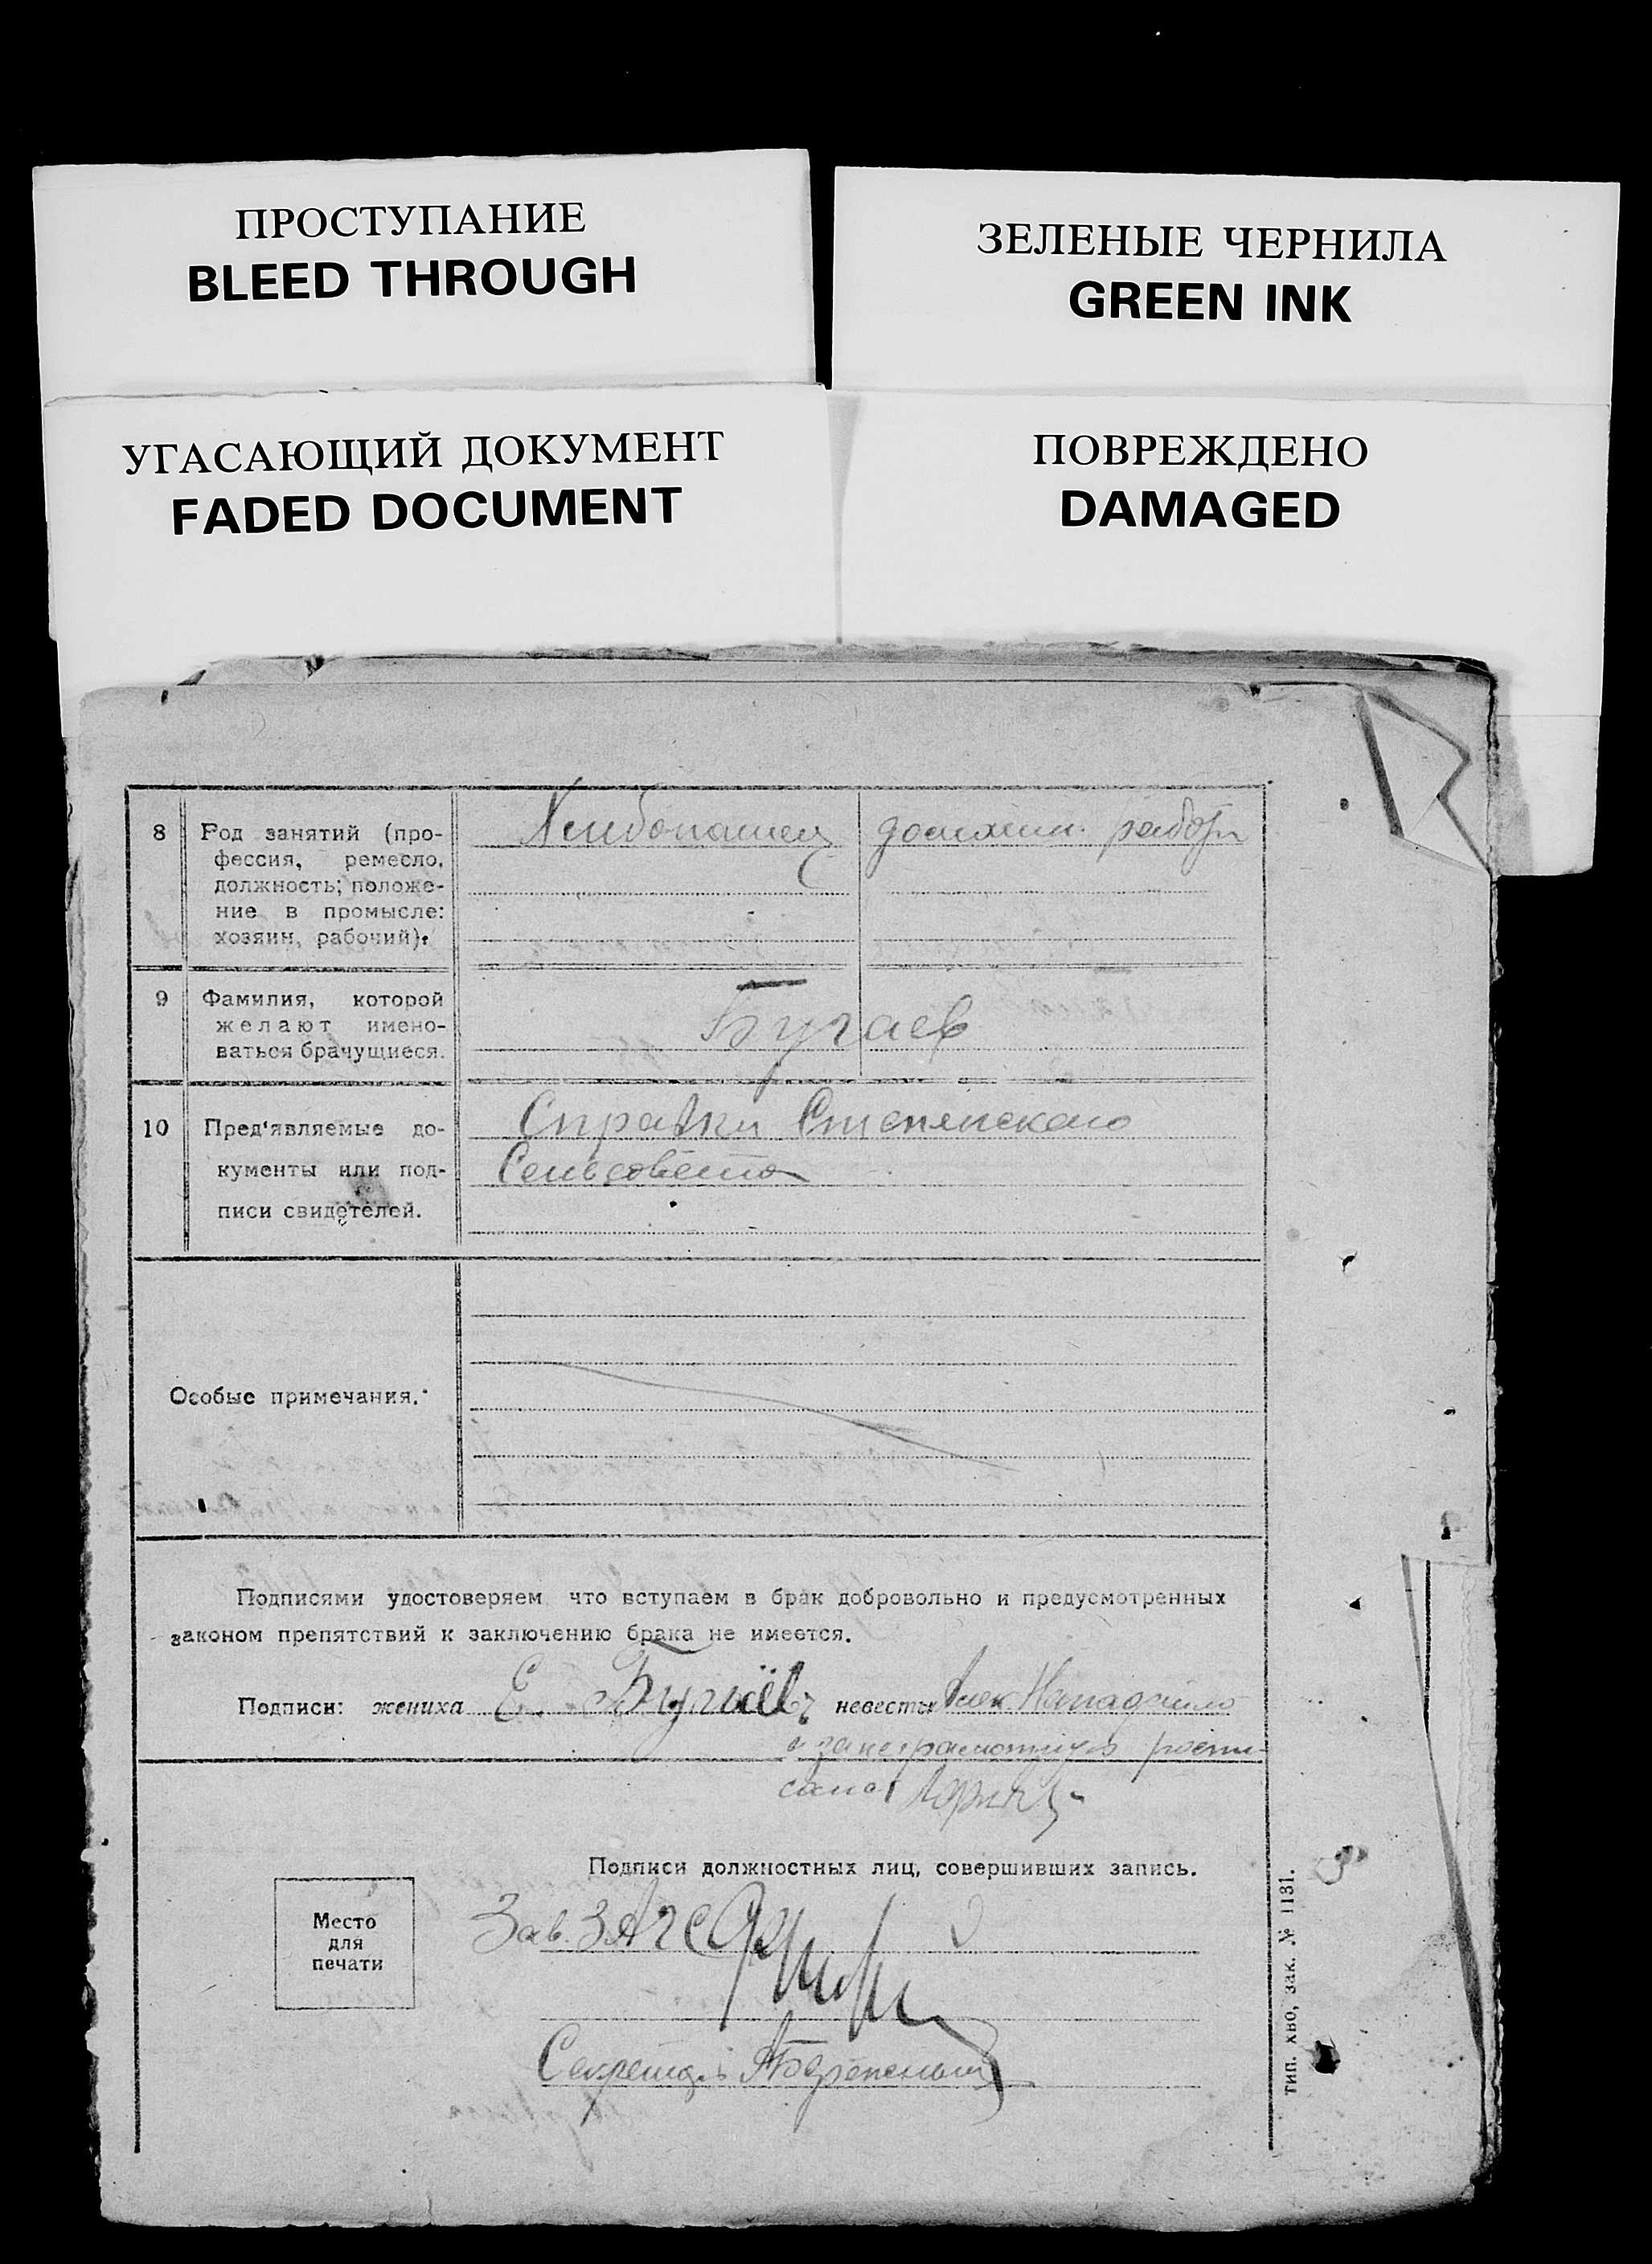 ПРОСТУПАНИЕ
BLEED THROUGH
ЗЕЛЕНЫЕ ЧЕРНИЛА
GREEN INK
УГАСАЮЩИЙ ДОКУМЕНТ
FADED DOCUMENT
ПОВРЕЖДЕНО
DAMAGED
8 Род занятий (про-
фессия, ремесло,
должность; положе-
ние в промысле:
хозяин, рабочий).
Хлебопашец
домашн. работы
9 Фамилия, которой
желают имено-
ваться брачущиеся.
Бугаев
10 Пред'являемые до-
кументы или под-
писи свидетелей.
Справки
Сельсовета
Особые примечания.
Подписями удостоверяем что вступаем в брак добровольно и предусмотренных
законом препятствий к заключению брака не имеется.
Подписи: жениха Е. Бугаёв невесты
а за неграмотную распи-
сался
Подписи должностных лиц, совершивших запись.
Место
для
печати
Зав. ЗАГС
Секретарь
тип. хво, зак. № 1131.